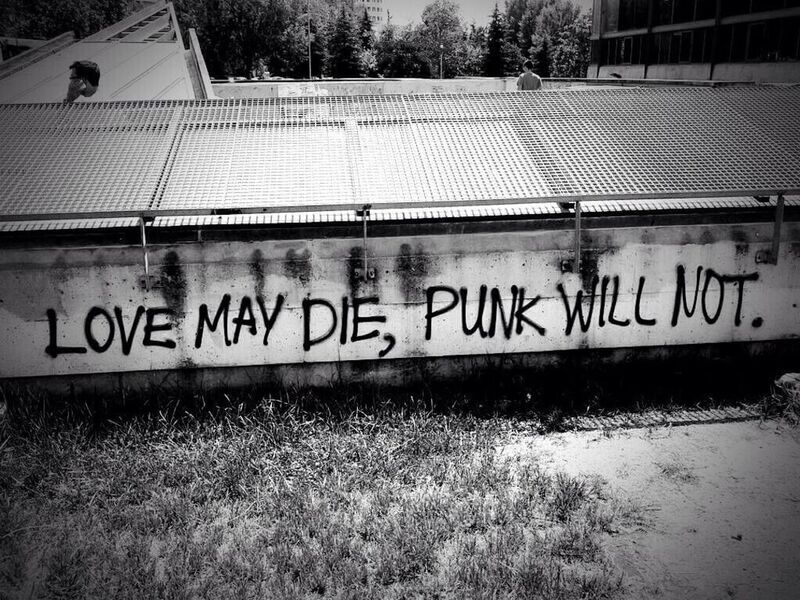 LOVE MAY DIE, PUNK WILL NOT.